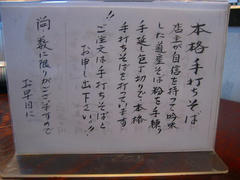 本格手打ちそば
店主が自信を持って吟味
した道産そば粉を手練り
手延し包丁切りで本格
手打ちそばを打っています
ご注文は手打ちそばと
お申し出下さい!!
尚数に限りがございますので
お早目に